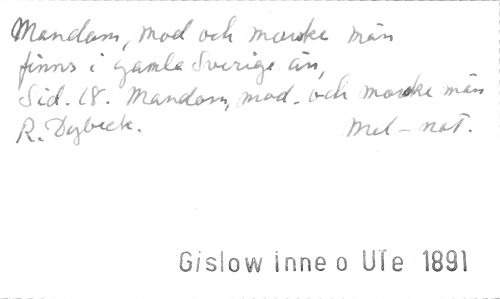 Mandom, mod och morske män
finns i gamla Sverige än,
Sid. 18. Mandom, mod. och morske män
R. Dybeck. Mel-not.
Gislow inne o Ute 1891